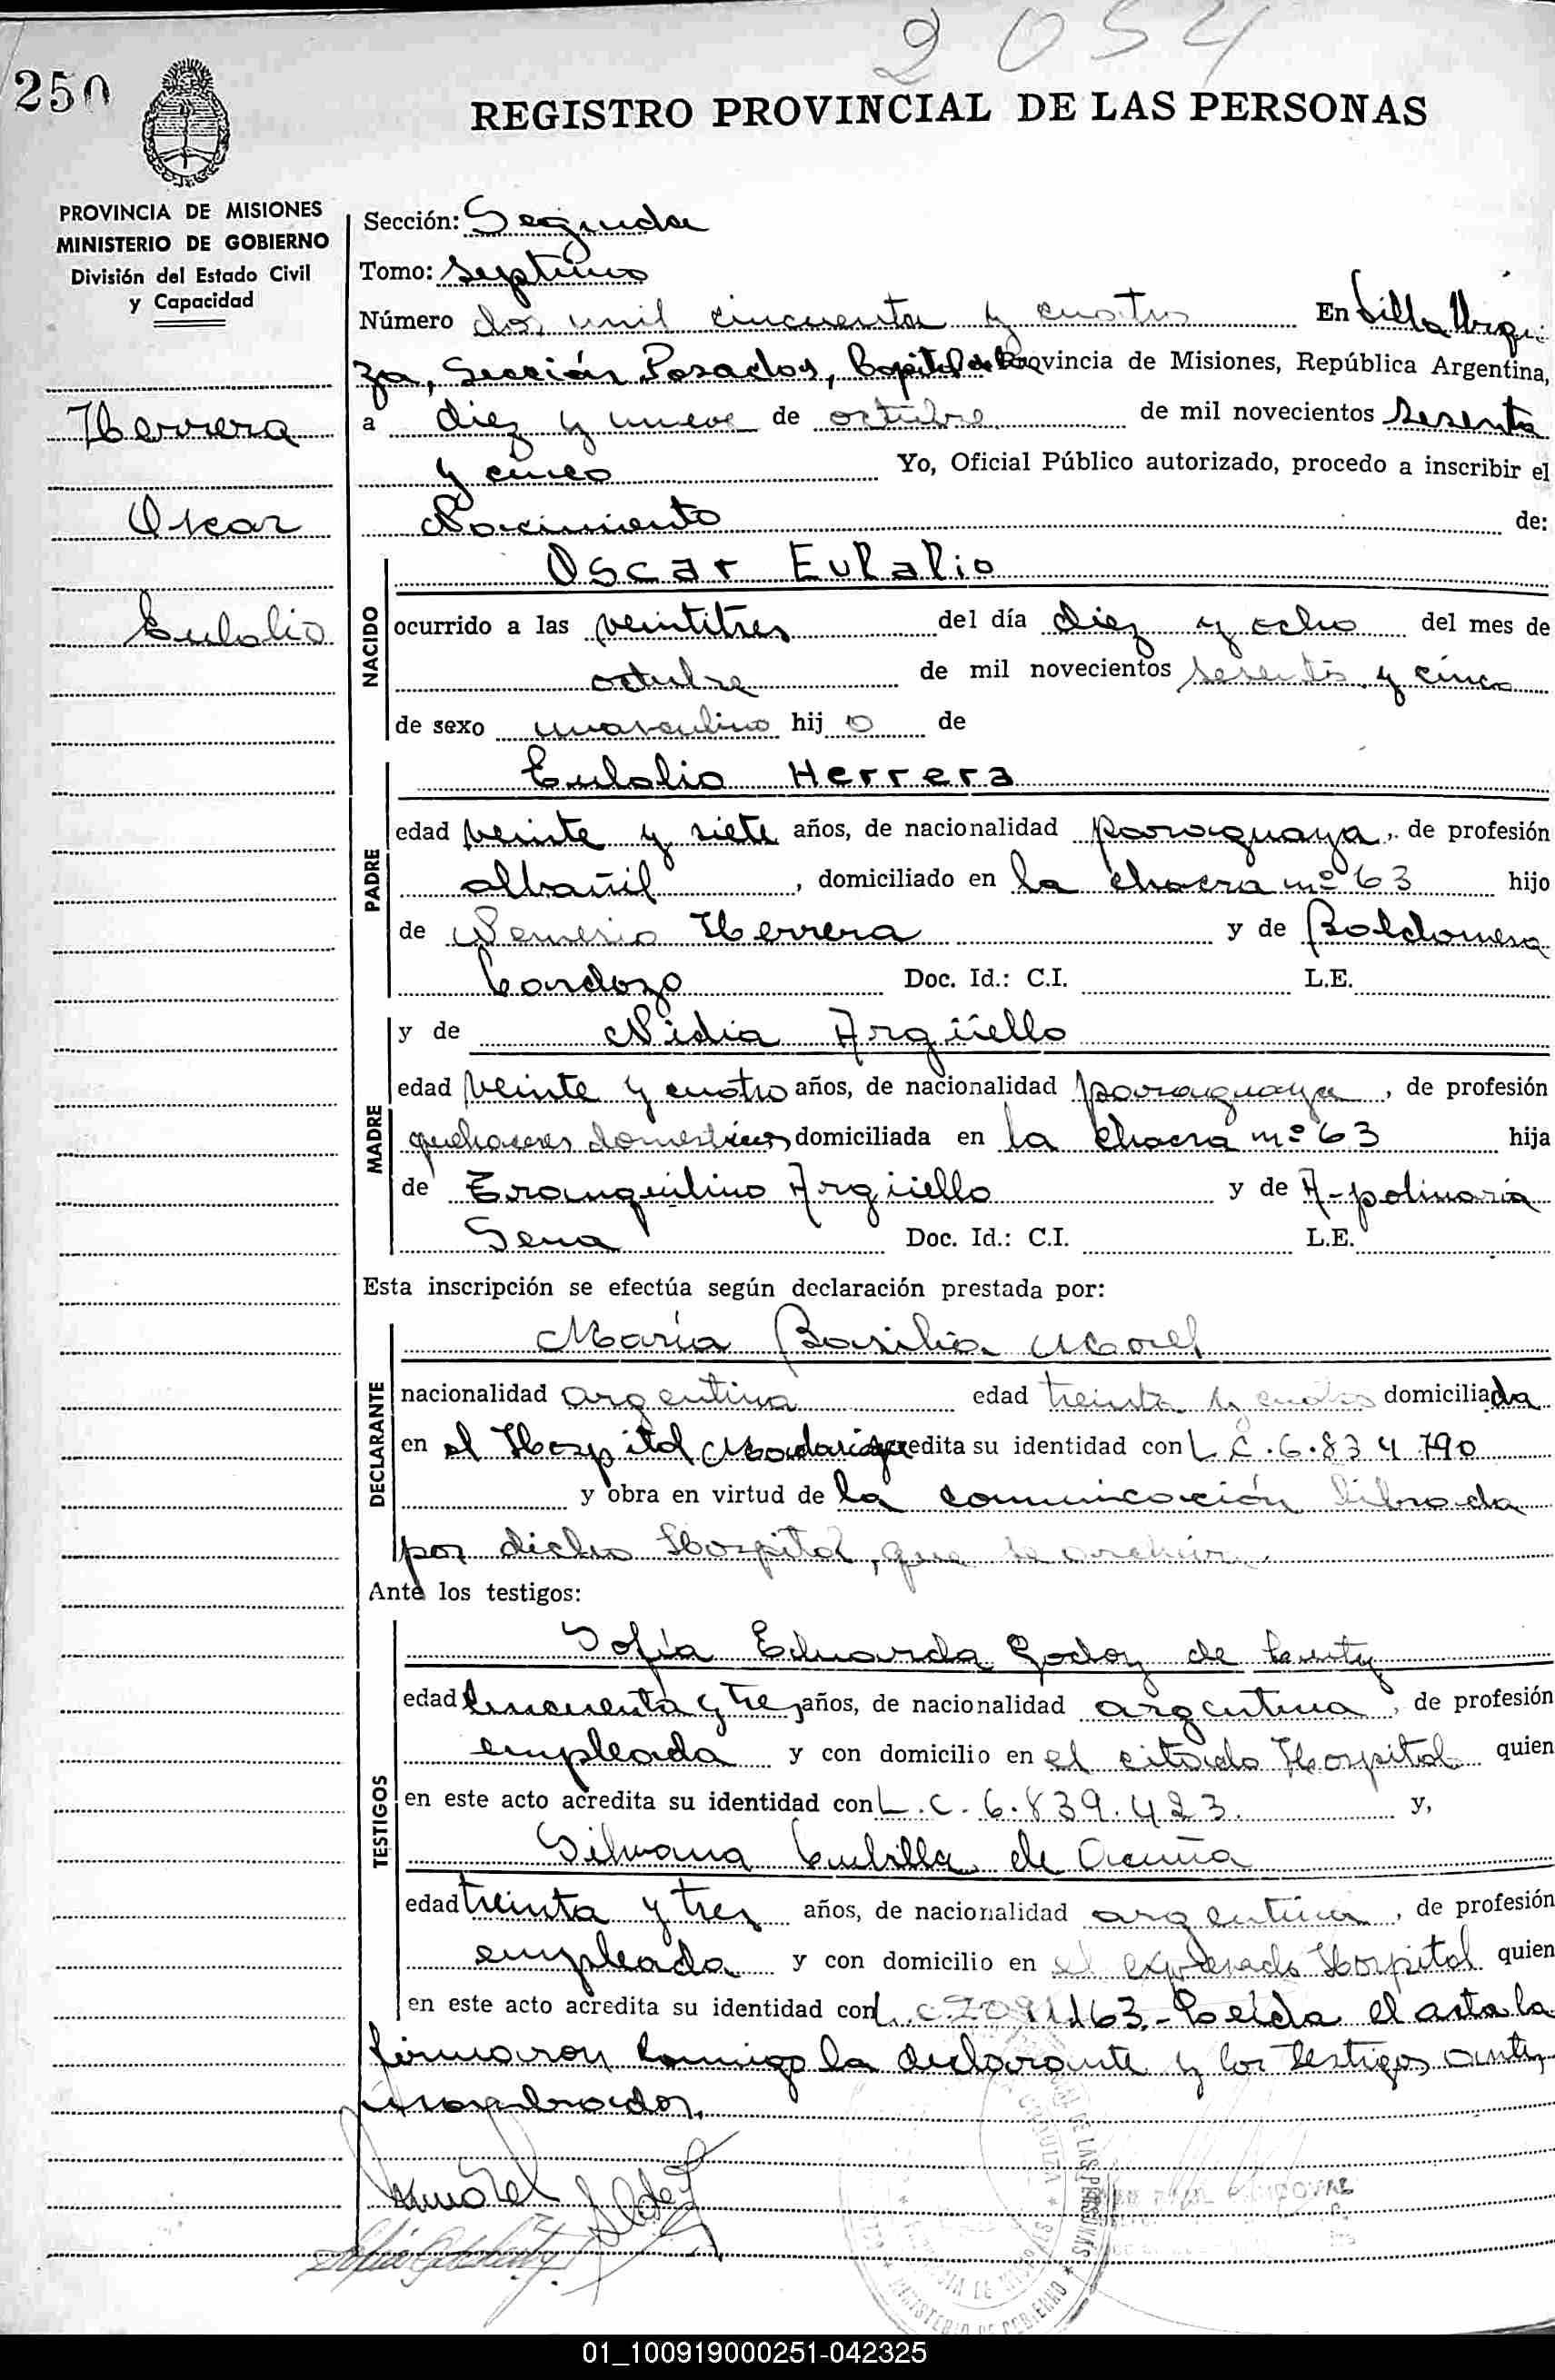 2054
250
REGISTRO PROVINCIAL DE LAS PERSONAS
PROVINCIA DE MISIONES
MINISTERIO DE GOBIERNO
División del Estado Civil
y Capacidad
Herrera
Oscar
Eulalio
Sección: Segunda
Tomo: Septimo
Número dos mil cincuenta y cuatro En Villa Urqui
za, Sección Posadas, Capital de la Provincia de Misiones, República Argentina,
a diez y nueve de octubre de mil novecientos sesenta
y cinco Yo, Oficial Público autorizado, procedo a inscribir el
Nacimiento de:
NACIDO
Oscar Eulalio
ocurrido a las veintitres del día diez y ocho del mes de
octubre de mil novecientos sesenta y cinco
de sexo masculino hij o de
PADRE
Eulalio Herrera
edad veinte y siete años, de nacionalidad paraguaya, de profesión
albañil, domiciliado en la chacra nº 63 hijo
de Nemesio Herrera y de Baldomera
Cardozo Doc. Id.: C.I. L.E.
MADRE
y de Nidia Argüello
edad veinte y cuatro años, de nacionalidad paraguaya, de profesión
quehaceres domesticos domiciliada en la chacra nº 63 hija
de Tranquilino Argüello y de Apolinaria
Sena Doc. Id.: C.I. L.E.
Esta inscripción se efectúa según declaración prestada por:
DECLARANTE
María Basilia Morel
nacionalidad argentina edad treinta y cuatro domiciliada
en el Hospital Madariaga acredita su identidad con L.C.6.834.790
y obra en virtud de la comunicación librada
por dicho Hospital, que se archiva.
Ante los testigos:
TESTIGOS
Sofía Eduarda Godoy de
edad cincuenta y tres años, de nacionalidad argentina, de profesión
empleada y con domicilio en el citado Hospital quien
en este acto acredita su identidad con L.C. 6.839.423. y,
Silvana Cubilla de Acuña
edad treinta y tres años, de nacionalidad argentina, de profesión
empleada y con domicilio en el expresado Hospital quien
en este acto acredita su identidad con L.C. 163.- Leída el acta la
firmaron conmigo la declarante y los testigos antes
nombrados.
01_100919000251-042325